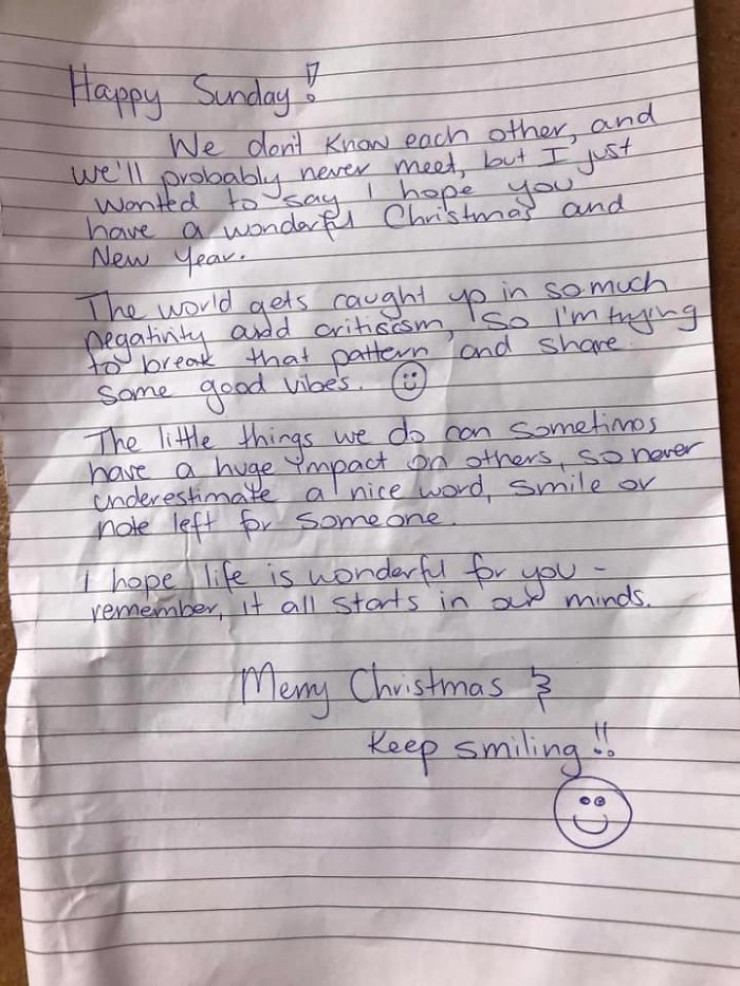 Happy Sunday!
We don't know each other, and
we'll probably never meet, but I just
wanted to say I hope you
have a wonderful Christmas and
New Year.
The world gets caught up in so much
negativity and criticism, so I'm trying
to break that pattern and share
some good vibes.
The little things we do can sometimes
have a huge impact on others, so never
underestimate a nice word, smile or
note left for someone.
I hope life is wonderful for you -
remember, it all starts in our minds.
Merry Christmas &
Keep smiling!!